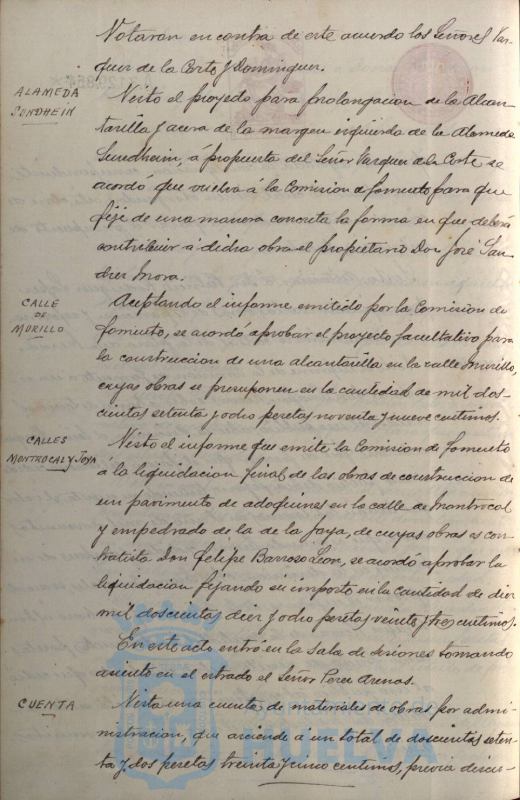 Votaron en contra de este acuerdo los Señores Vaz-
quez de la Corte y Dominguez.
ALAMEDA
SUNDHEIN
Visto el proyecto para prolongacion de la Alcan-
tarilla y acera de la margen izquierda de la Alameda
Sundheim, á propuesta del Señor Vazquez de la Corte se
acordó que vuelva á la Comision de fomento para que
fije de una manera concreta la forma en que deberá
contribuir á dicha obra el propietario Don José San-
chez Mora.
CALLE
DE
MURILLO
Aceptando el informe emitido por la Comision de
fomento, se acordó aprobar el proyecto facultativo para
la construccion de una alcantarilla en la calle Murillo,
cuyas obras se presuponen en la cantidad de mil dos-
cientas setenta y ocho pesetas noventa y nueve centimos.
CALLES
MONTROCAL y JOYA
Visto el informe que emite la Comision de fomento
á la liquidacion final de las obras de construccion de
un pavimento de adoquines en la calle de Montrocal
y empedrado de la de la Joya, de cuyas obras es con-
tratista Don Felipe Barroso Leon, se acordó aprobar la
liquidacion fijando su importe en la cantidad de diez
mil doscientas diez y ocho pesetas veinte y tres centimos.
En este acto entró en la Sala de sesiones tomando
asiento en el estrado el Señor Perez Arenas.
CUENTA
Vista una cuenta de materiales de obras por admi-
nistracion, que asciende á un total de doscientas seten-
ta y dos pesetas treinta y cinco centimos, previa discu-
HUELVA